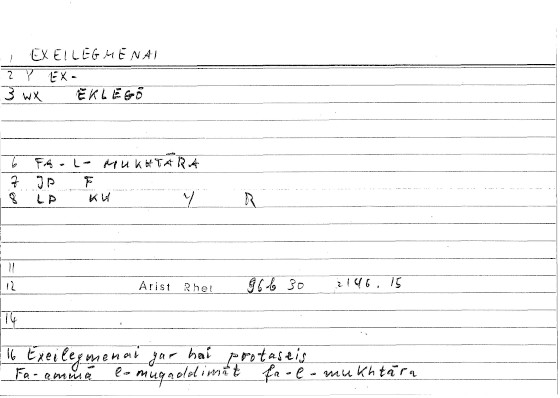 1 EXEILEGMENAI
2 Y EX-
3 WX EKLEGŌ
6 FA-L-MUKHTĀRA
7 JP F
8 LP KH Y R
11
12 Arist Rhet 96b 30 2146.15
14
16 Exeilegmenai gar hai protaseis
Fa-ammā l-muqaddimāt fa-l-mukhtāra